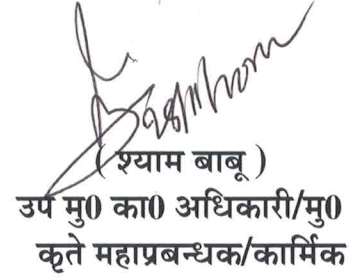 ( श्याम बाबू )
उप मु0 का0 अधिकारी/मु0
कृते महाप्रबन्धक/कार्मिक